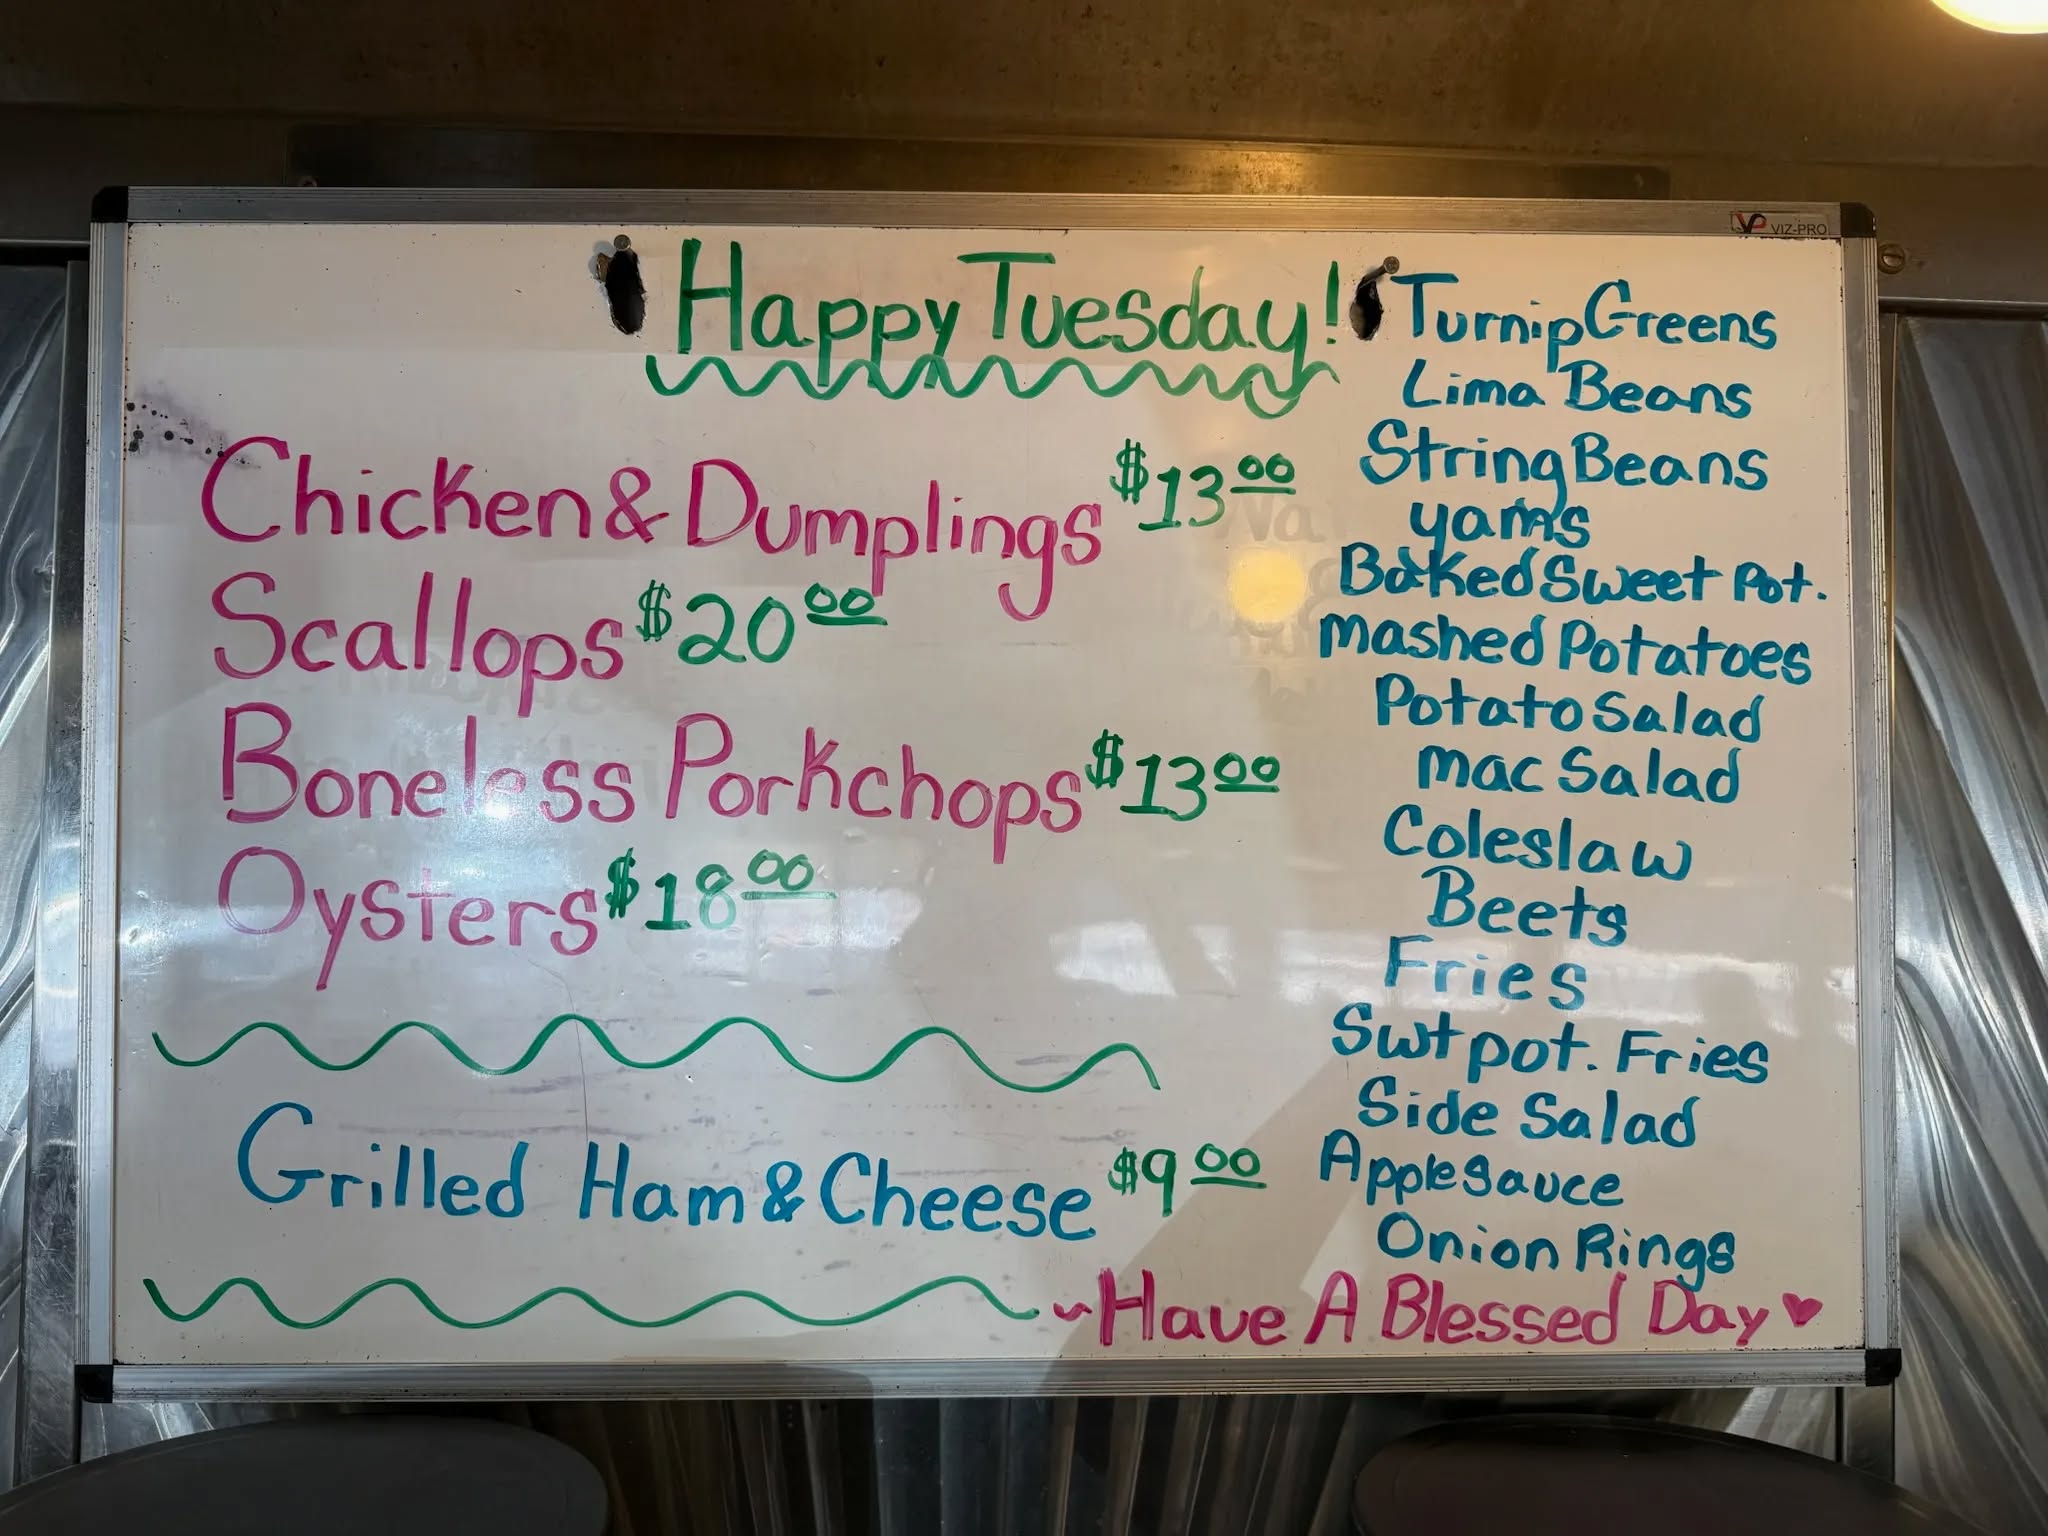 VP VIZ-PRO
Happy Tuesday!
Chicken & Dumplings $13 00
Scallops $20 00
Boneless Porkchops $13 00
Oysters $18 00
Grilled Ham & Cheese $9 00
Turnip Greens
Lima Beans
String Beans
yams
Baked Sweet Pot.
Mashed Potatoes
Potato Salad
Mac Salad
Coleslaw
Beets
Fries
Swt pot. Fries
Side Salad
Applesauce
Onion Rings
~Have A Blessed Day ♥